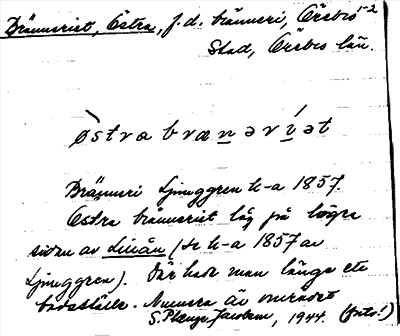 Bränneriet, Östra, f.d. bränneri, Örebro 1-2
Stad, Örebro län.
òstra brænəríət
Bränneri Ljunggren k-a 1857.
Östra bränneriet låg på högra
sidan av Lillån (se k-a 1857 av
Ljunggren). Där hade man länge ett
badställe. Numera är området
S. Plenge Jacobson, 1944. (forts.!)